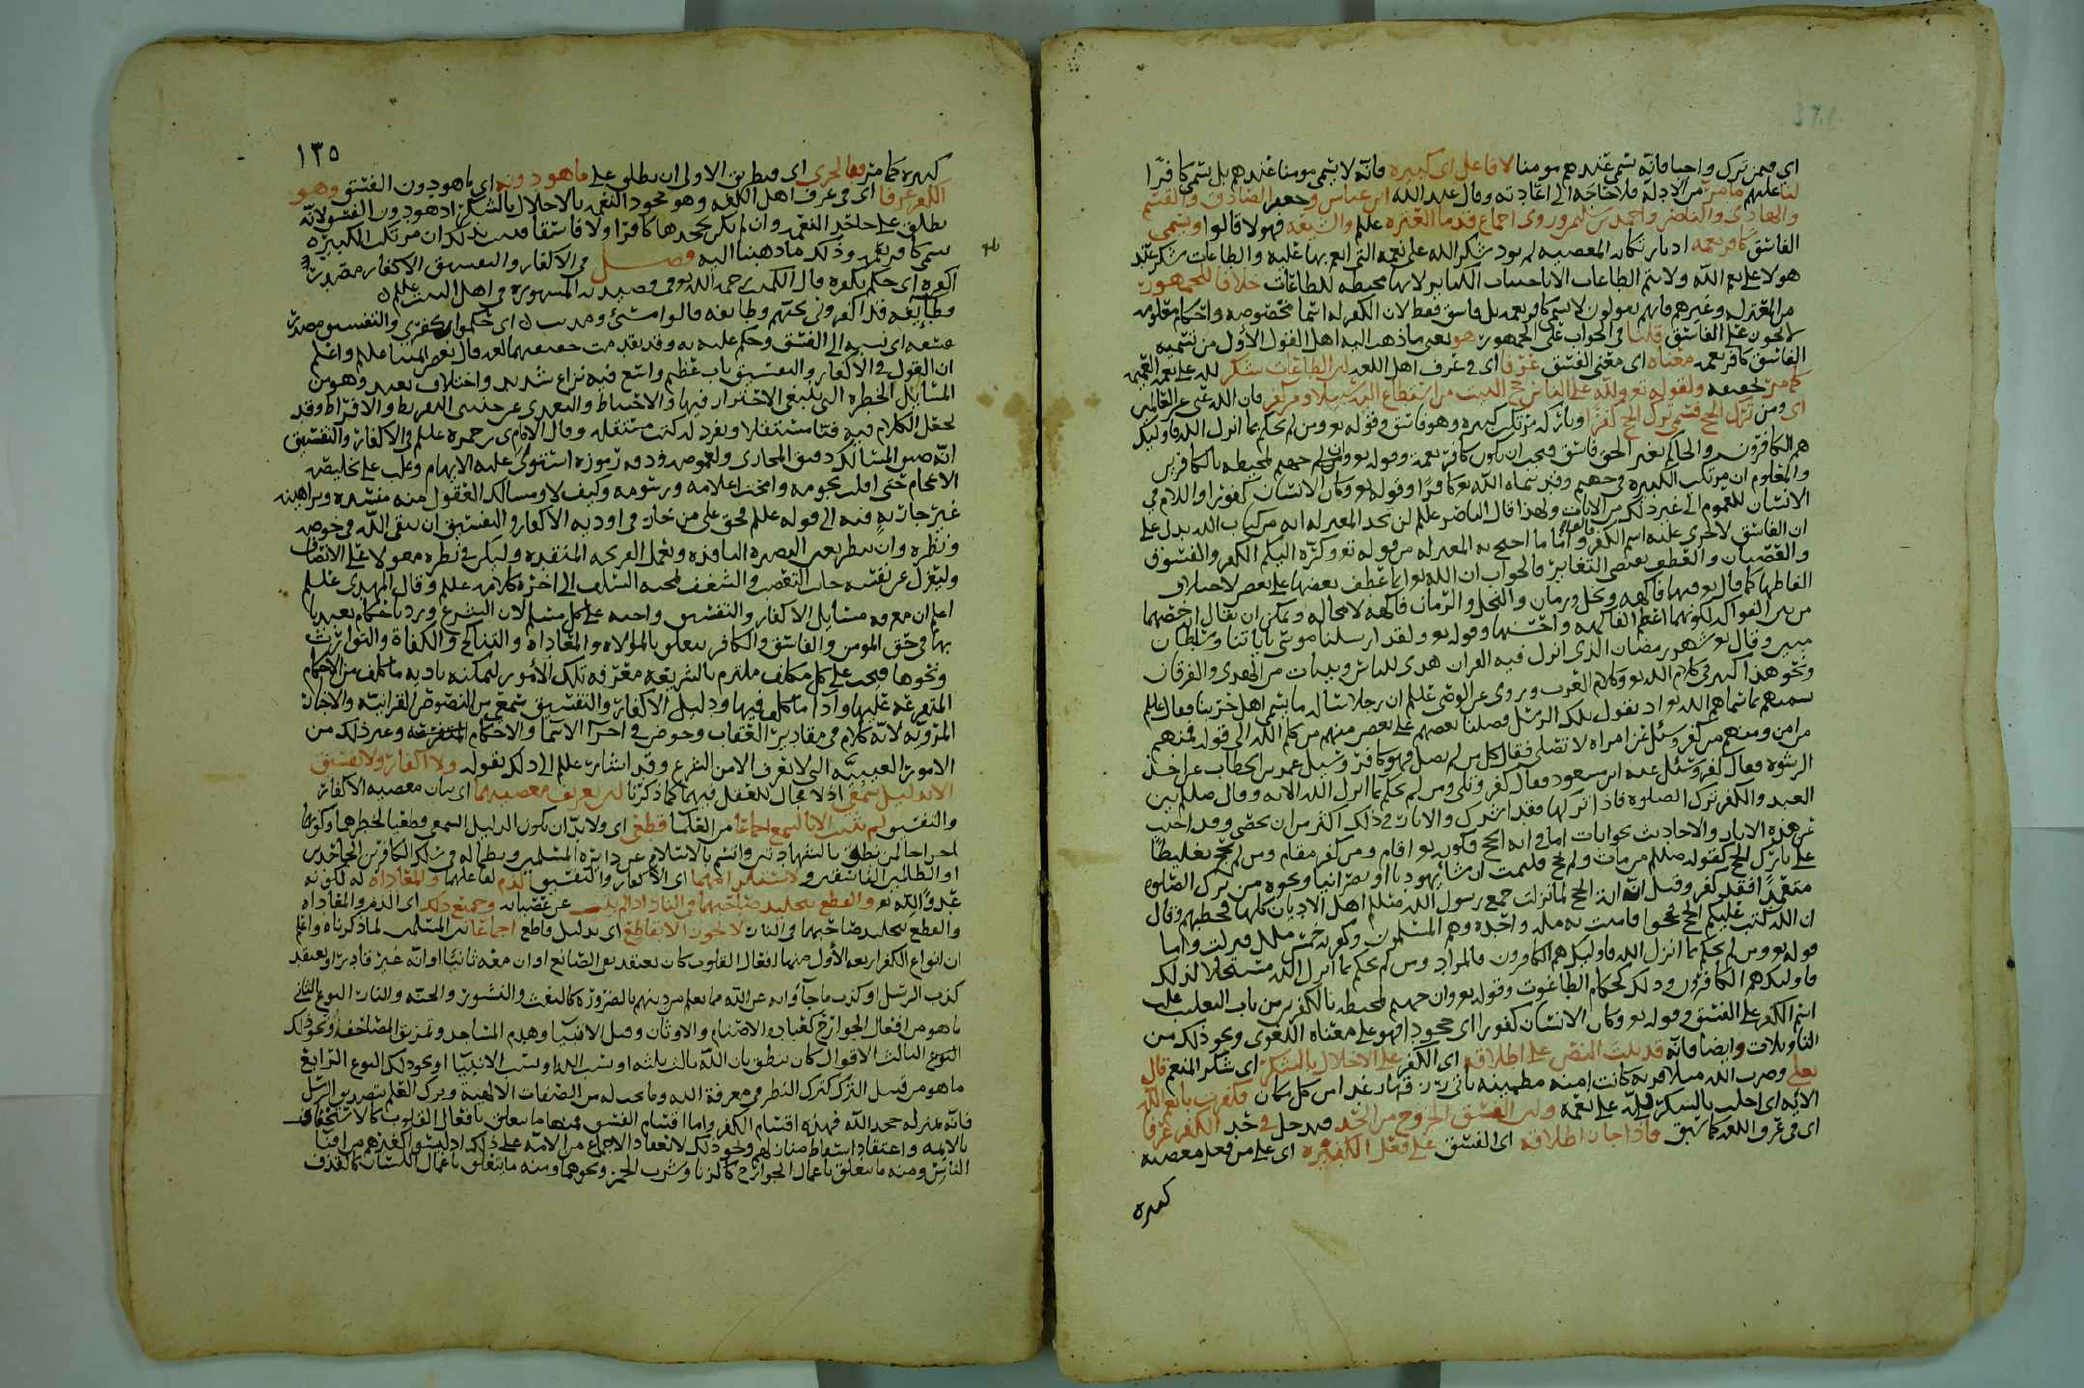 اي فيمن ترك واجبا فانه يسمى عندهم مومنا لا فاعل اي كبيره فانه لا يسمى مومنا عندهم بل يسمى كافرا
لنا عليهم ما مر من الادلة فلا حاجه الى اعادته وقال عبد الله ابن عباس وجعفر الصادق والقسم
والهادي والناصر واحمد بن سليمن وروي اجماع قدما العتره علهم والشيعه فهولا قالوا ويسمى
الفاسق كافر نعمه اذ بارتكابه المعصيه لم يود شكر الله على نعمه التي انعم بها عليه والطاعات شكر عند
هولا على نعم الله ولا يتم الطاعات الا باجتناب الكبائر لانها محبطه للطاعات خلافا للجمهور
من المعتزله وغيرهم فانهم يقولون لا يسمى كافر نعمه بل فاسق فقط لان الكفر له اسما مخصوصه واحكام معلومه
لا تجوز على الفاسق قلنا في الجواب على الجمهور هو يعني ما ذهب اليه اهل القول الاول من تسميه
الفاسق كافر نعمه معناه اي معنى الفسق عرفا اي في عرف اهل اللغه لان الطاعات شكر لله على نعمه
كما مر تحقيقه ولقوله تع ولله على الناس حج البيت من استطاع اليه سبيلا ومن كفر فان الله غني عن العالمين
اي ومن ترك الحج فسمى ترك الحج كفرا وتاركه مرتكب كبيره وهو فاسق وقوله تع ومن لم يحكم بما انزل الله فاوليك
هم الكافرون والحاكم بغير الحق فاسق فيجب ان يكون كافر نعمة وقوله تع وان جهنم لمحيطه بالكافرين
والمعلوم ان مرتكب الكبيره في جهنم وقد سماه الله تع كافرا وقوله تع وكان الانسان كفورا واللام في
الانسان للعموم الى غير ذلك من الايات ولهذا قال الناصر علهم لن تجد المعتزله ايه من كتاب الله يدل على
ان الفاسق لا يجري عليه اسم الكفر واما ما احتج به المعتزله من قوله تع وكره اليكم الكفر والفسوق
والعصيان والعطف يقتضي التغاير فالجواب ان الله تع انما عطف بعضها على بعض لاختلاف
الفاظها كما قال تع فيهما فاكهه ونخل ورمان والنخل والرمان فاكهه لا محاله ويمكن ان يقال اخصهما
من بين الفواكه لكونهما اعظم الفاكهه واحسنها وقوله تع ولقد ارسلنا موسى باياتنا وسلطان
مبين وقال تع شهر رمضان الذي انزل فيه القران هدى للناس وبينات من الهدى والفرقان
ونحو هذا كثير في كلام الله تع وكلام العرب وروي عن الوصي علهم ان رجلا سأله ما يسمى اهل حربنا فقال علهم
نسميهم بما سماهم الله تع اذ يقول تلك الرسل فضلنا بعضهم على بعض منهم من كلم الله الى قوله فمنهم
من امن ومنهم من كفر وسئل عن امراه لا تصلي فقال كل من لم يصل فهو كافر وسئل عمر بن الخطاب عن اخذ
الرشوه فقال كفر وسئل عنه ابن مسعود فقال كفر وتلى ومن لم يحكم بما انزل الله الايه وقال صلعم بين
العبد والكفر ترك الصلوه فاذا تركها فقد اشرك والاثار في ذلك اكثر من ان تحصى وقد اجيب
عن هذه الايات والاحاديث بجوابات اما في ايه الحج فكونه تع اقام ومن كفر مقام ومن لم يحج تغليظا
على تارك الحج كقوله صلعم من مات ولم يحج فليمت ان شا يهوديا او نصرانيا ونحوه من ترك الصلوه
متعمدا فقد كفر وقيل ان اية الحج لما نزلت جمع رسول الله صلعم اهل الاديان كلها فخطبهم وقال
ان الله كتب عليكم الحج فحجوا فامنت به مله واحده وهم المسلمون وكفرت خمس ملل فنزلت واما
قوله تع ومن لم يحكم بما انزل الله فاوليك هم الكافرون فالمراد ومن لم يحكم بما انزل الله مستحلا لذلك
فاوليك هم الكافرون وذلك كحكام الطاغوت وقوله تع وان جهنم لمحيطه بالكافرين من باب التغليب غلب
اسم الكفر على الفسق وقوله تع وكان الانسان كفورا اي جحودا فهو على معناه اللغوي ونحو ذلك من
التاويلات وايضا فانه قد ثبت النص على اطلاقه اي الكفر على الاخلال بالشكر اي شكر المنعم قال
تعلى وضرب الله مثلا قرية كانت امنه مطمينه ياتيها رزقها رغدا من كل مكان فكفرت بانعم الله
الايه اي اخلت بالشكر لله على نعمه ولان الفسق الخروج من الحد فيدخل في حد الكفر عرفا
اي في عرف اللغه كما سبق فاذا جاز اطلاقه اي الفسق على فعل الكبيره اي على من فعل معصيه
كبيره
١٣٥
كبيره كما مر فبالحري اي فبطريق الاولى ان يطلق على ما هو دونه اي ما هو دون الفسق وهو
الكفر عرفا اي في عرف اهل اللغه وهو جحود النعمه بالاخلال بالشكر اذ هو دون الفسق لانه
يطلق على جاحد النعم وان لم يكن بجحدها كافرا ولا فاسقا فثبت بذلك ان مرتكب الكبيره
يسمى كافر نعمه وذلك ما ذهبنا اليه فصل في الاكفار والتفسيق الاكفار مصدر
اكفره اي حكم بكفره قال الكميت رحمه الله تع في قصيدته المشهوره في اهل البيت علهم
وطايفه قد اكفروني بحبهم وطايفه قالوا مسيء ومذنب اي حكموا بكفري والتفسيق مصدر
فسقه اي نسبه الى الفسق وحكم عليه به وقد تقدمت حقيقتهما قال بعض ايمتنا علهم واعلم
ان القول في الاكفار والتفسيق باب عظيم واسع فيه نزاع شديد واختلاف بعيد وهو من
المسايل الخطره التي ينبغي الاحتراز فيها والاحتياط والتعدي عن جنسي التفريط والافراط وقد
يحتمل الكلام فيه فنا مستقلا ويفرد له كتب مستقله وقال الامام ي بن حمزه علهم في الاكفار والتفسيق
انه ضيق المسالك دقيق المجاري ولغموضه ودقه رموزه استولى عليه الابهام وغلب على تخليصه
الاعجام حتى افلت نجومه وامحت اعلامه ورسومه وكيف لا ومسالك العقول منه منسده وبراهينه
غير جاريه فيه الى قوله علهم فحق على من خاض في اوديه الاكفار والتفسيق ان يتقي الله في خوضه
ونظره وان ينظر بعين البصيره النافذه ويعمل القريحه المتقده وليكن في نظره معولا على الانصاف
وليعزل عن نفسه جانب التعصب والشغف لمحبه السلف الى اخر كلامه علهم وقال المهدي علهم
اعلم ان معرفه مسايل الاكفار والتفسيق واجبه على كل مسلم لان الشرع ورد باحكام تعبدنا
بها في حق المومن والفاسق والكافر يتعلق بالموالاه والمعاداه والتناكح والكفاة والتوارث
ونحوها فيجب على كل مكلف ملتزم بالشريعه معرفه تلك الامور ليمكنه تاديه ما كلف من الاحكام
المتفرعه عليها واداء ما كلف فيها ودليل الاكفار والتفسيق سمعي من النصوص القرانيه والاخبار
المرويه لانه كلام في مقادير العقاب وخوض في اجرا الاسما والاحكام وغير ذلك من
الامور الغيبيه التي لا تعرف الا من الشرع وقد اشار علهم الى ذلك بقوله ولا اكفار ولا تفسيق
الا بدليل سمعي اذ لا مجال للعقل فيهما كما ذكرنا لان تعريف معصيتهما اي بيان معصيه الاكفار
والتفسيق لم يثبت الا بالسمع اجماعا من العلما قطعي اي ولا بد ان يكون الدليل السمعي قطعيا لخطرهما وكونهما
اخراجا لمن نطق بالشهادتين واتسم بالاسلام عن دايرة المسلمين وابطاله في سلك الكافرين الجاحدين
او الظالمين الفاسقين ولاستلزامهما اي الاكفار والتفسيق الذم لفاعلهما والمعاداه له لكونه
عدوا لله تع والقطع بتخليد صاحبهما في النار اذا لم يتب عن عصيانه وجميع ذلك اي الذم والمعاداه
والقطع بتخليد صاحبهما في النار لا يجوز الا بقاطع اي بدليل قاطع اجماعا بين المسلمين لما ذكرناه واعلم
ان انواع الكفر اربعه الاول منها افعال القلوب كان يعتقد نفي الصانع او ان معه ثانيا او انه غير قادر او يعتقد
كذب الرسل او كذب ما جآؤا به عن الله مما يعلم من دينهم بالضروره كالبعث والنشور والجنه والنار النوع الثاني
ما هو من افعال الجوارح كعبادة الاصنام والاوثان وقتل الانبيا وهدم المساجد وتمزيق المصاحف ونحو ذلك
النوع الثالث الاقوال كان ينطق بان الله ثالث ثلثه او بسب الله او بسب الانبيا او نحو ذلك النوع الرابع
ما هو من قبيل الترك كترك النظر في معرفة الله وما يجب له من الصفات الالهيه وترك العلم بتصديق الرسل
فانه بمنزله جحد الله فهذه اقسام الكفر واما اقسام الفسق فمنها ما يتعلق بافعال القلوب كالاستخفاف
بالايمه واعتقاد اسقاط منازلهم ونحو ذلك لانعقاد الاجماع من الامه على ذلك اذ ليسوا كغيرهم من افنا
الناس ومنه ما يتعلق باعمال الجوارح كالزنا وشرب الخمر ونحوهما ومنه ما يتعلق باعمال اللسان كالقذف